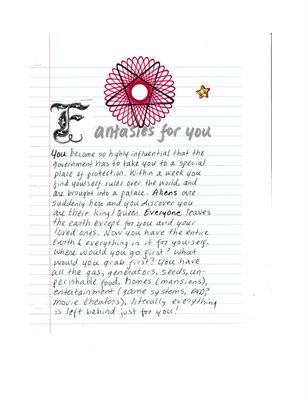 Fantasies for you
You become so highly influential that the
government has to take you to a special
place of protection. Within a week you
find yourself ruler over the world, and
are brought into a palace. Aliens are
suddenly here and you discover you
are their king/Queen. Everyone leaves
the earth except for you and your
loved ones. Now you have the entire
Earth & everything in it for yourself.
Where would you go first? What
would you grab first? You have
all the gas, generators, seeds, un-
perishable food, homes (mansions),
entertainment (game systems, DVD,
movie theaters), literally everything
is left behind just for you!